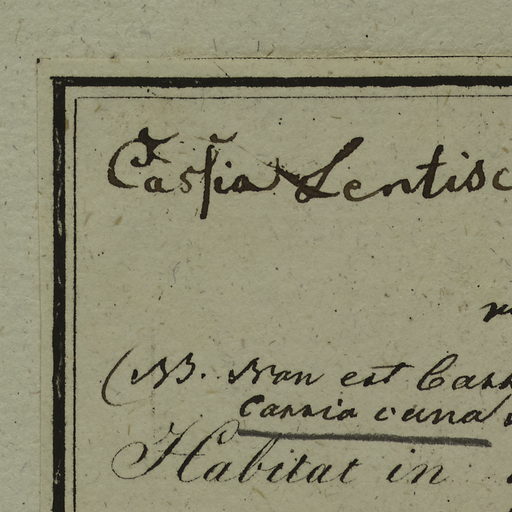 Casſia Lentisc
(NB. Non est Cass
Cassia cana
Habitat in